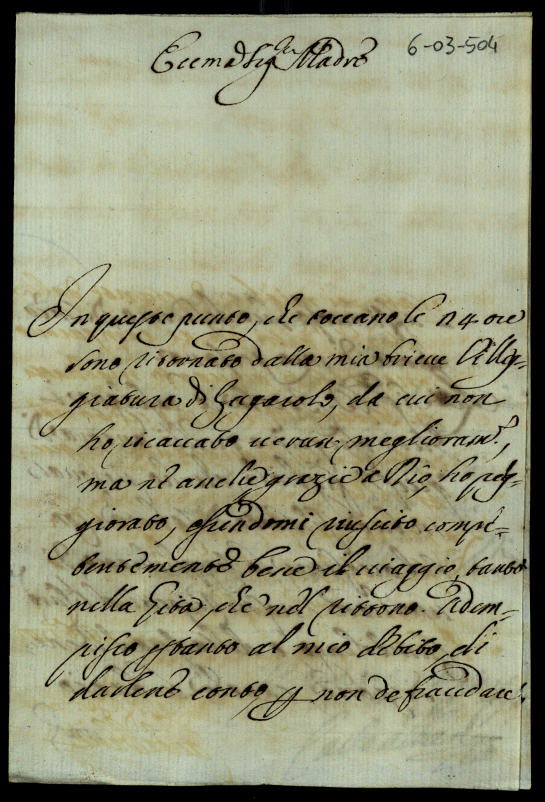 Eccma Sigra Madre
6-03-504
In questo punto, che toccano le 24 ore
sono ritornato dalla mia brieve Villeg-
giatura di Zagarolo, da cui non
ho ricavato verun miglioramto,
ma nè anche grazie a Dio, ho peg-
giorato, essendomi riuscito compe-
tentemente bene il viaggio, tanto
nella Gita, che nel ritorno. Adem-
pisco pertanto al mio debito, di
darlene conto, p non defraudare